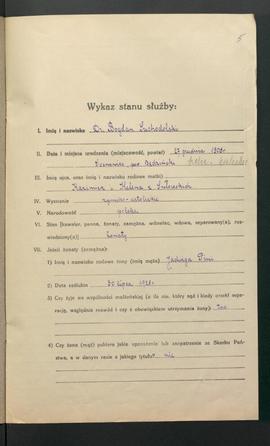 5
Wykaz stanu służby:
I. Imię i nazwisko Dr. Bogdan Suchodolski
II. Data i miejsce urodzenia (miejscowość, powiat) 27 grudnia 1903 r.
Sosnowiec, pow. Będziński
III. Imię ojca, oraz imię i nazwisko rodowe matki:
Kazimierz i Helena z
IV. Wyznanie rzymsko-katolickie
V. Narodowość polska
VI. Stan (kawaler, panna, żonaty, zamężna, wdowiec, wdowa, separowany(a), roz-
wiedziony(a) żonaty
VII. Jeżeli żonaty (zamężna):
1) Imię i nazwisko rodowe żony (imię męża) Jadwiga
2) Data zaślubin 30 lipca
3) Czy żyje we wspólności małżeńskiej (o ile nie, który sąd i kiedy orzekł sepa-
rację, względnie rozwód i czy z obowiązkiem utrzymania żony) tak
4) Czy żona (mąż) pobiera jakie uposażenie lub zaopatrzenie ze Skarbu Pań-
stwa, a w danym razie z jakiego tytułu? nie